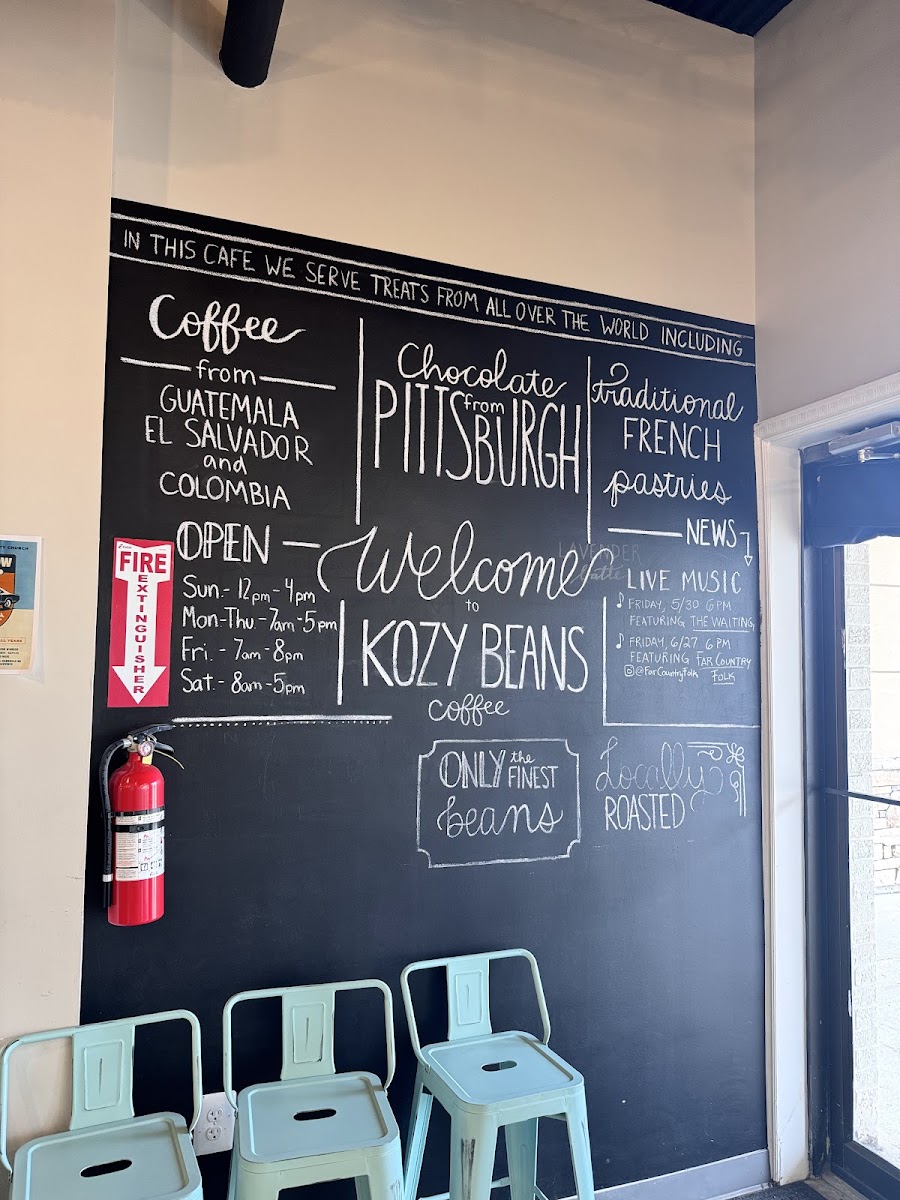 IN THIS CAFE WE SERVE TREATS FROM ALL OVER THE WORLD INCLUDING
Coffee
from
GUATEMALA
EL SALVADOR
and
COLOMBIA
Chocolate
from
PITTSBURGH
traditional
FRENCH
pastries
OPEN
Sun. - 12pm - 4pm
Mon-Thu - 7am - 5pm
Fri. - 7am - 8pm
Sat. - 8am - 5pm
Welcome
to
KOZY BEANS
coffee
NEWS
LAVENDER
latte
LIVE MUSIC
FRIDAY, 5/30 6 PM
FEATURING THE WAITING
FRIDAY, 6/27 6 PM
FEATURING FAR COUNTRY
@FarCountryFolk FOLK
ONLY the
FINEST
beans
Locally
ROASTED
FIRE
EXTINGUISHER